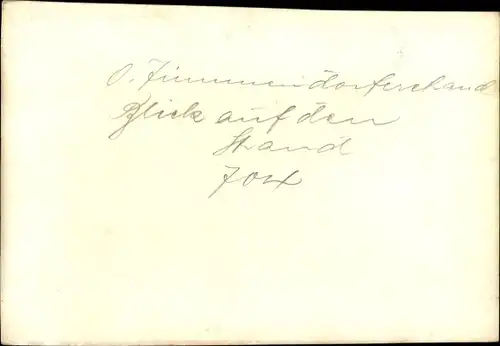 O. Timmendorferstrand
Blick auf den
Strand
704